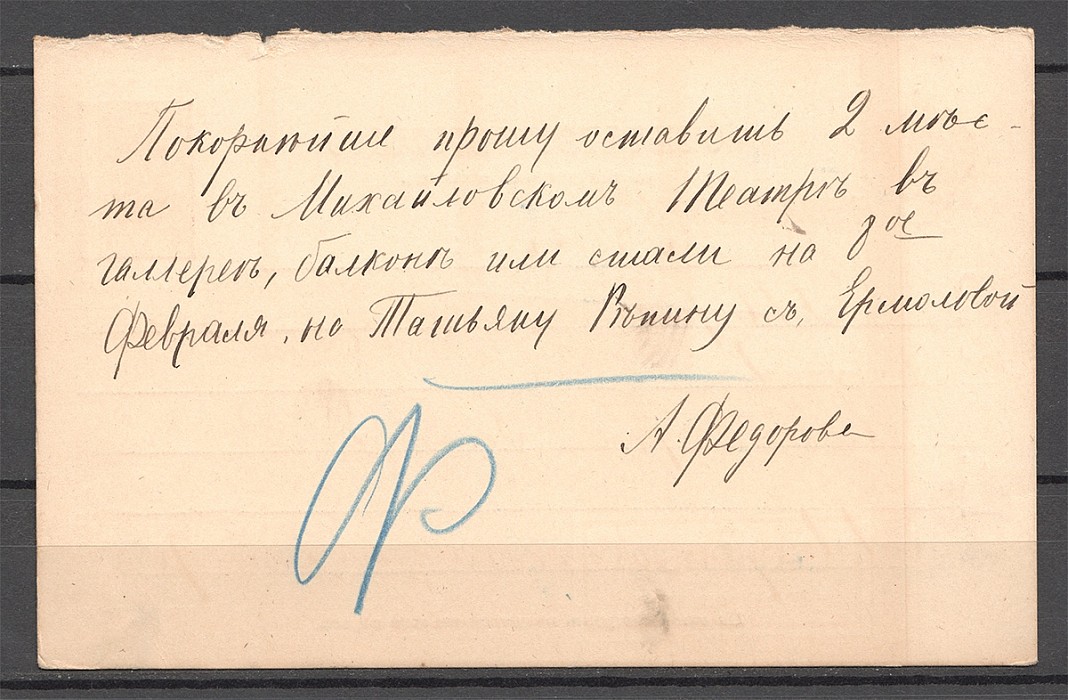 Покорнѣйше прошу оставить 2 мѣс-
та въ Михайловскомъ Театрѣ въ
галлереѣ, балконѣ или стали на 8ое
Февраля, на Татьяну Рѣпину съ, Ермоловой
А. Федорова
Ф